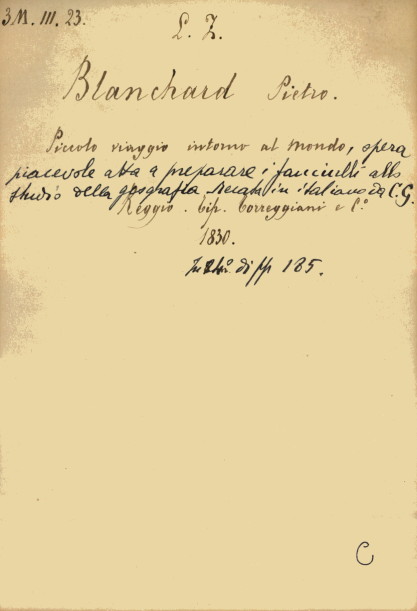 3M. III. 23.
L. Z.
Blanchard Pietro.
Piccolo viaggio intorno al mondo, opera
piacevole atta a preparare i fanciulli allo
studio della geografia. Recata in italiano da C. G.
Reggio. Tip. Torreggiani e C.º
1830.
In 24º. di pp 185.
C